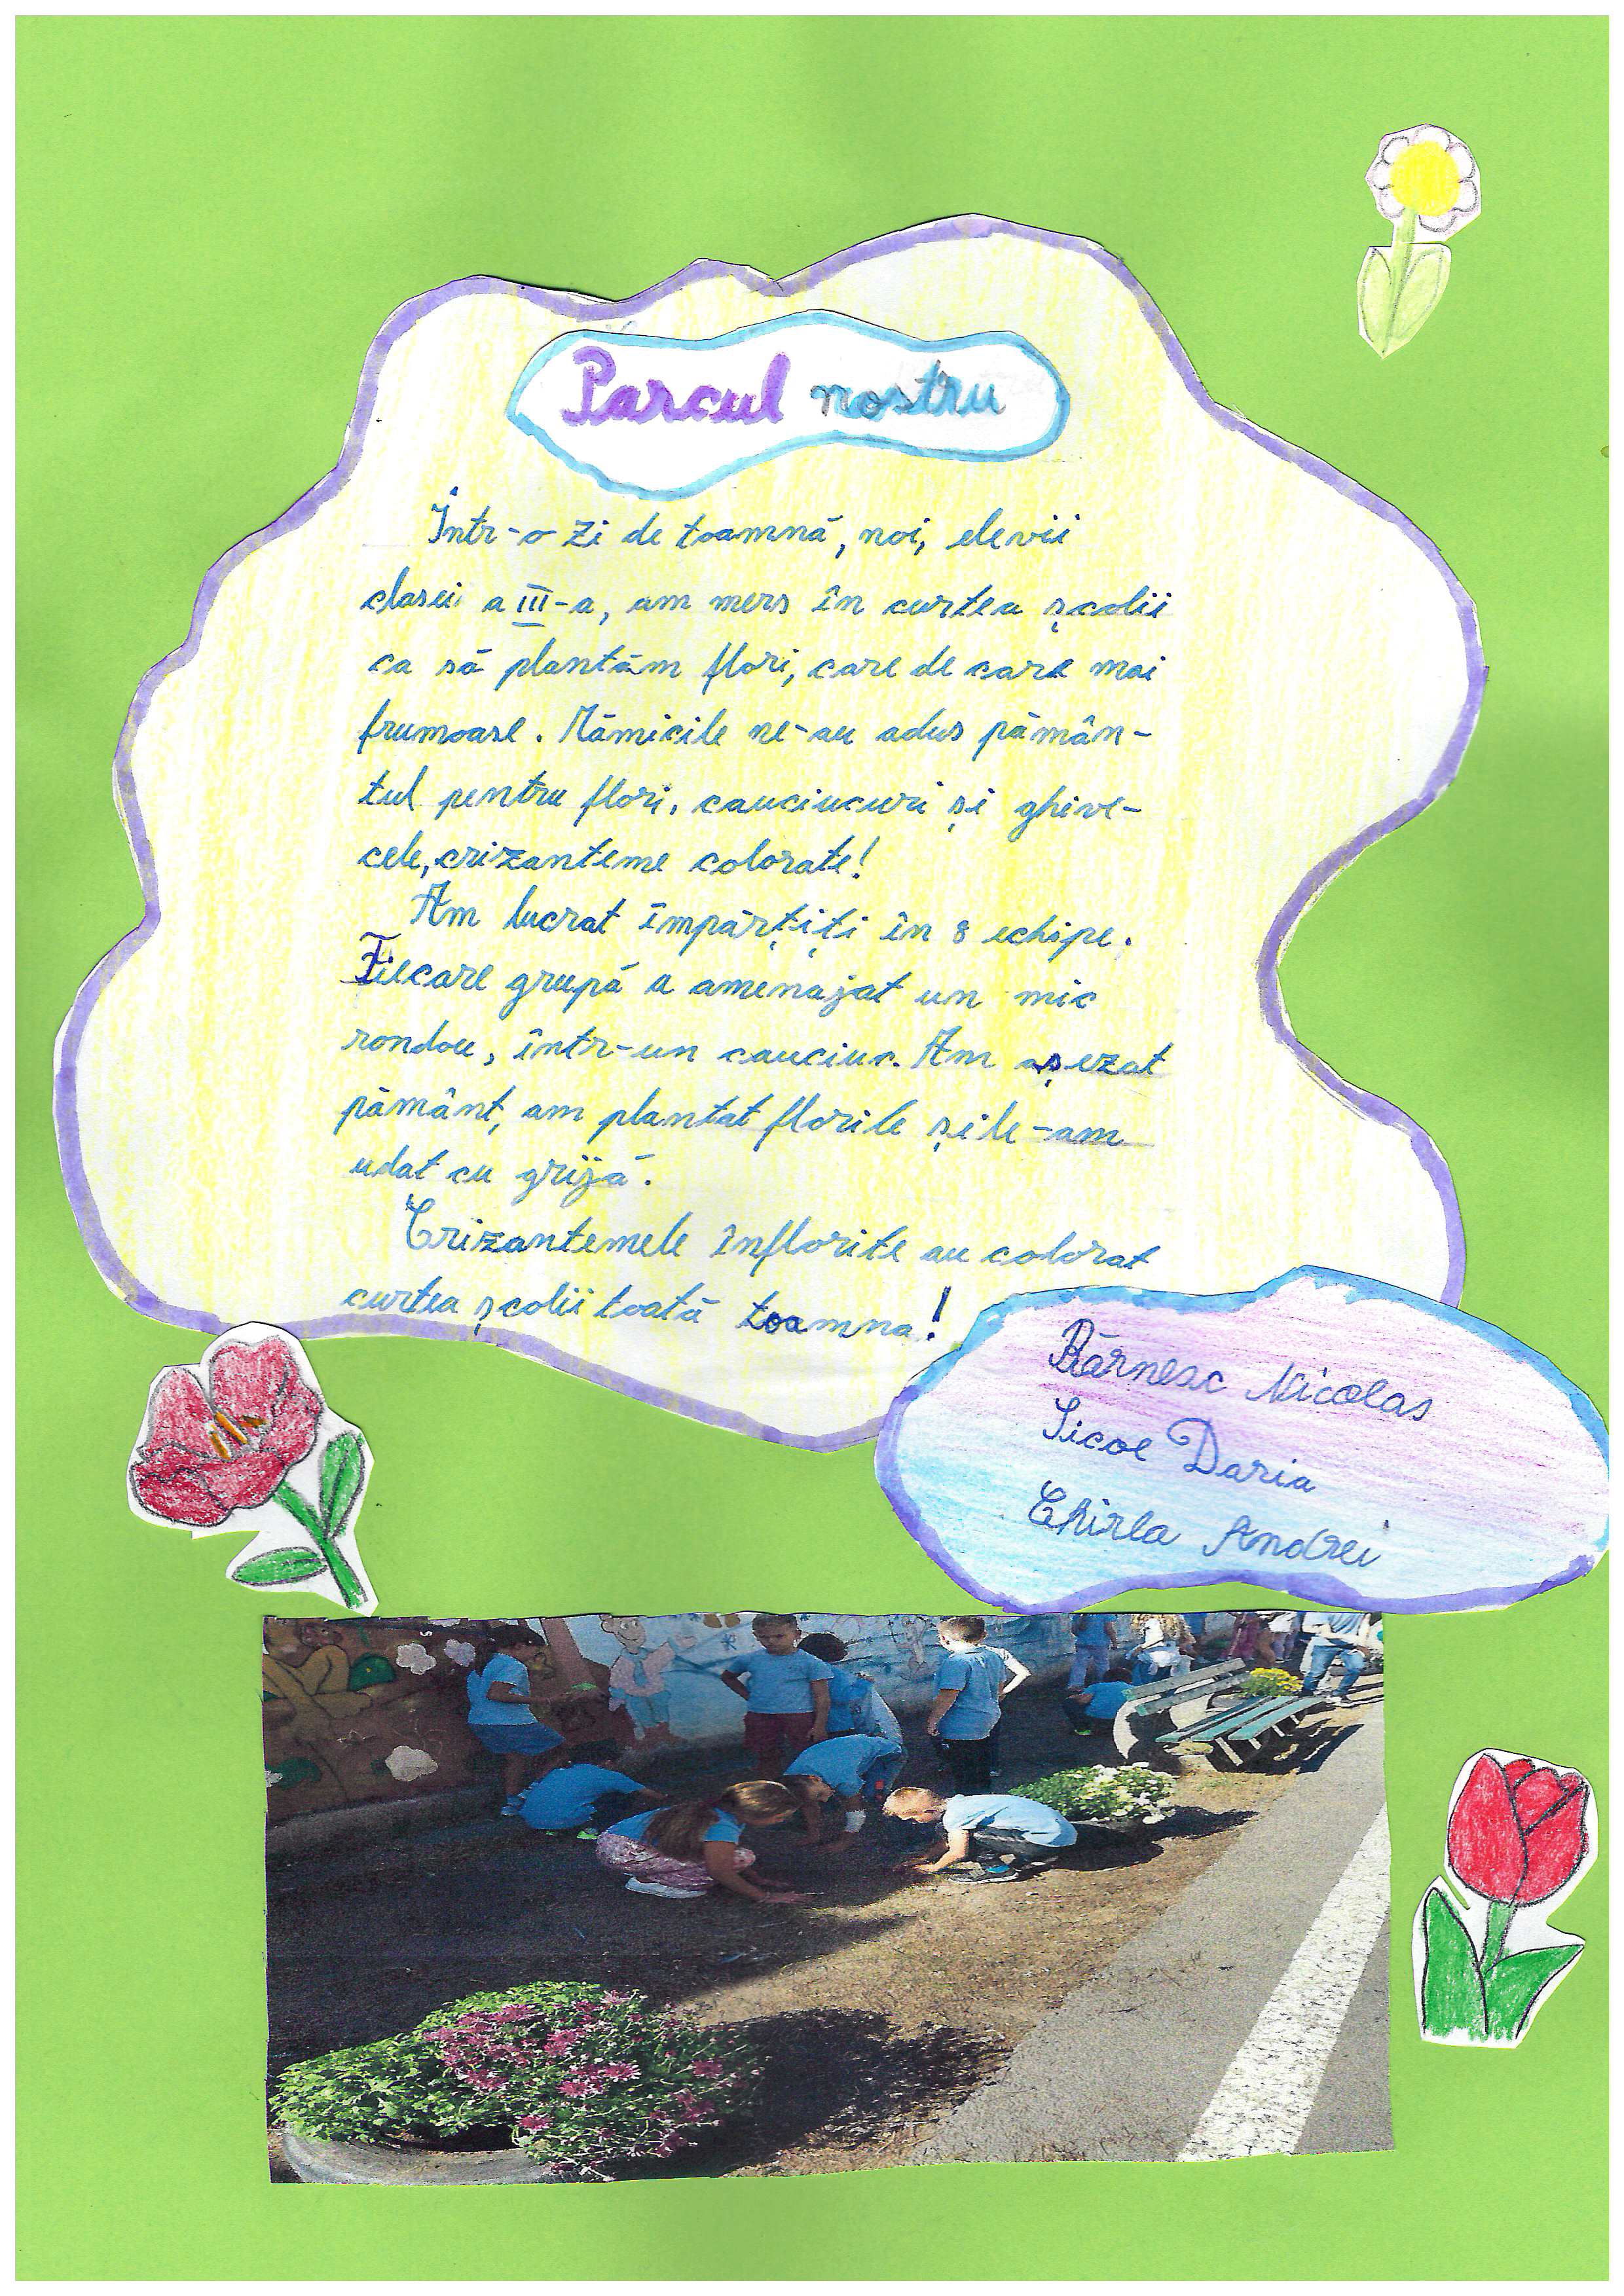 Parcul nostru
Într-o zi de toamnă, noi, elevii
clasei a III-a, am mers în curtea școlii
ca să plantăm flori, care de care mai
frumoase. Mămicile ne-au adus pămân-
tul pentru flori, cauciucuri și ghive-
cele, crizanteme colorate!
Am lucrat împărțiți în 8 echipe.
Fiecare grupă a amenajat un mic
rondou, într-un cauciuc. Am așezat
pământ, am plantat florile și le-am
udat cu grijă.
Crizantemele înflorite au colorat
curtea școlii toată toamna!
Bărnesc Nicolas
Sicoe Daria
Chirla Andrei